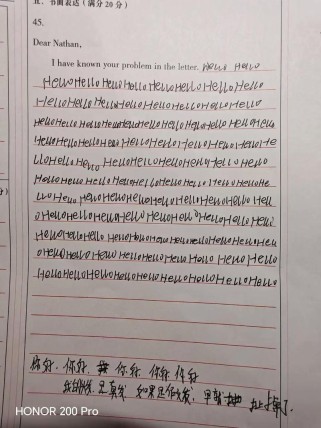 五、书面表达（满分20分）
45.
Dear Nathan,
I have known your problem in the letter. Hello Hello
HelloHelloHelloHelloHelloHelloHelloHello
HelloHelloHelloHelloHelloHelloHelloHello
HelloHelloHelloHelloHelloHelloHelloHelloHello
HelloHelloHelloHelloHelloHelloHelloHelloHe
lloHelloHello HelloHelloHelloHelloHello
HelloHelloHelloHelloHelloHelloHelloHelloHe
lloHello HelloHelloHelloHelloHelloHelloHell
oHelloHelloHelloHelloHelloHelloHelloHello
HelloHelloHelloHelloHelloHelloHelloHelloHell
oHelloHelloHelloHelloHelloHelloHello HelloHello
HelloHelloHelloHelloHelloHelloHelloHelloHello
你好，你好，你好，你好，你好
是真我，如果是你我，早就
HONOR 200 Pro